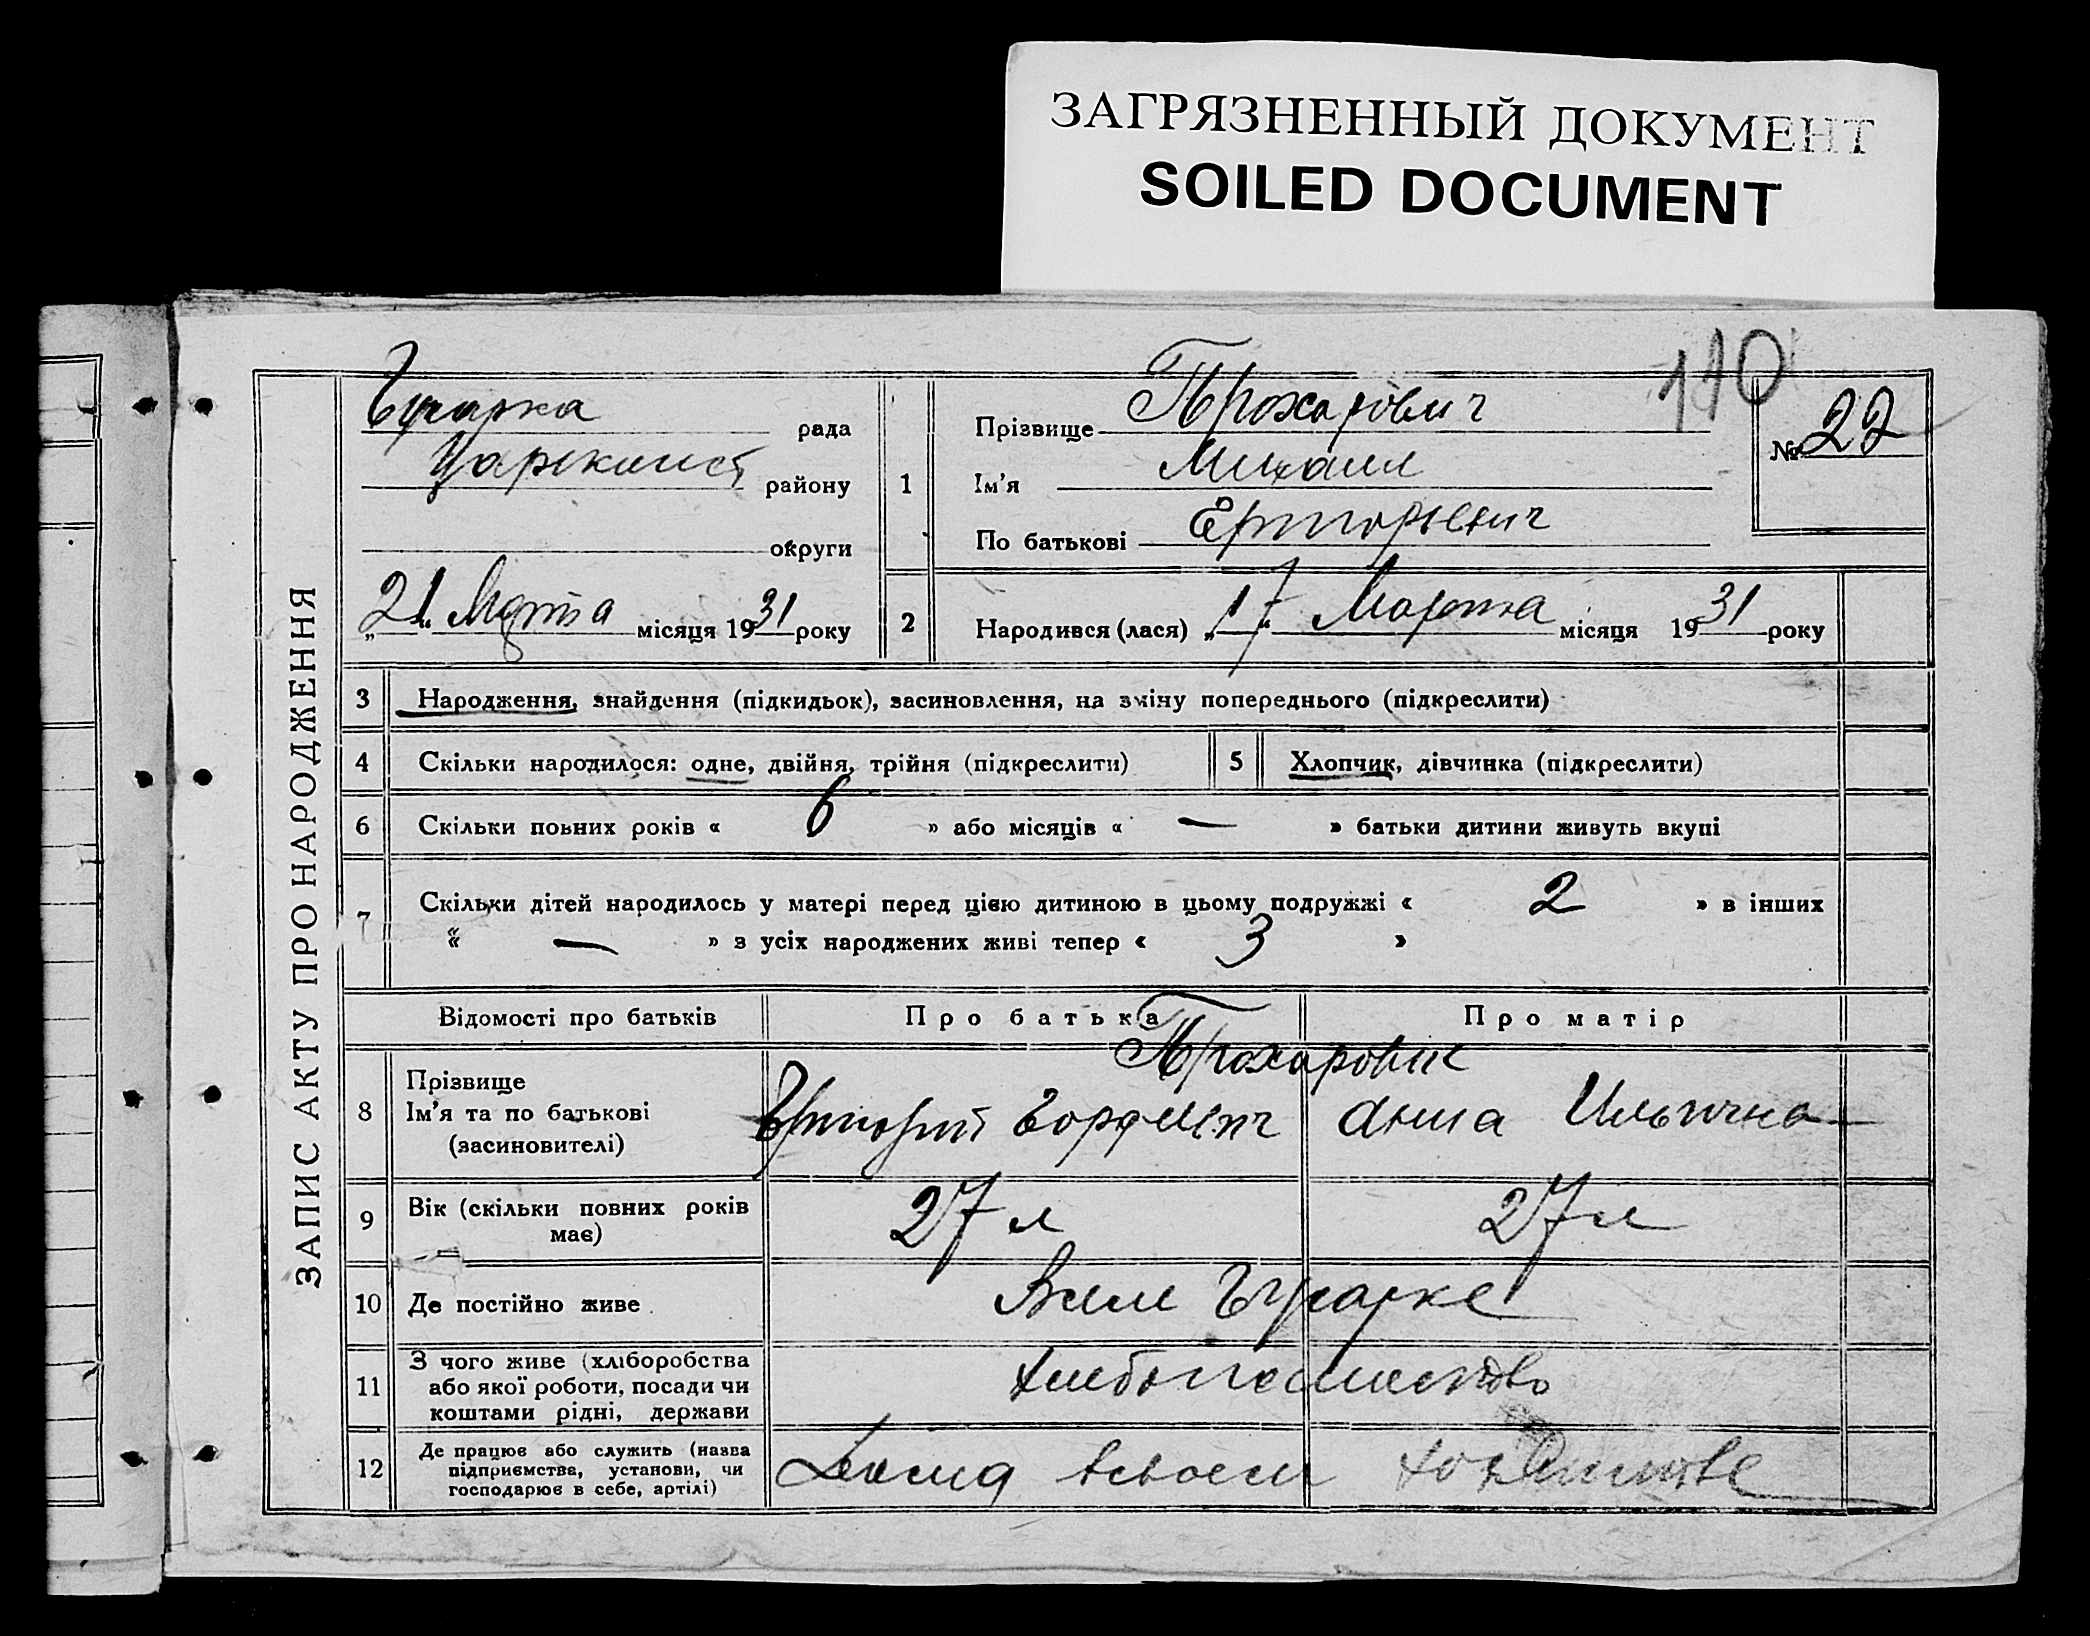 ЗАГРЯЗНЕННЫЙ ДОКУМЕНТ
SOILED DOCUMENT
110
ЗАПИС АКТУ ПРО НАРОДЖЕННЯ
рада
району
округи
„21“ Марта місяця 1931 року
1
Прізвище Прохарович
Ім'я Михаил
По батькові Григорьевич
№ 22
2
Народився (лася) „17“ Марта місяця 1931 року
3 Народження, знайдення (підкидьок), засиновлення, на зміну попереднього (підкреслити)
4 Скільки народилося: одне, двійня, трійня (підкреслити)
5 Хлопчик, дівчинка (підкреслити)
6 Скільки повних років « 6 » або місяців « — » батьки дитини живуть вкупі
7 Скільки дітей народилось у матері перед цією дитиною в цьому подружжі « 2 » в інших
« — » з усіх народжених живі тепер « 3 »
Відомості про батьків
Про батька
Про матір
8
Прізвище
Ім'я та по батькові
(засиновителі)
Прохарович
Григорий
Анна Ильична
9
Вік (скільки повних років
має)
27 л
27 л
10 Де постійно живе
11
З чого живе (хліборобства
або якої роботи, посади чи
коштами рідні, держави
12
Де працює або служить (назва
підприємства, установи, чи
господарює в себе, артілі)
Дома всвоем